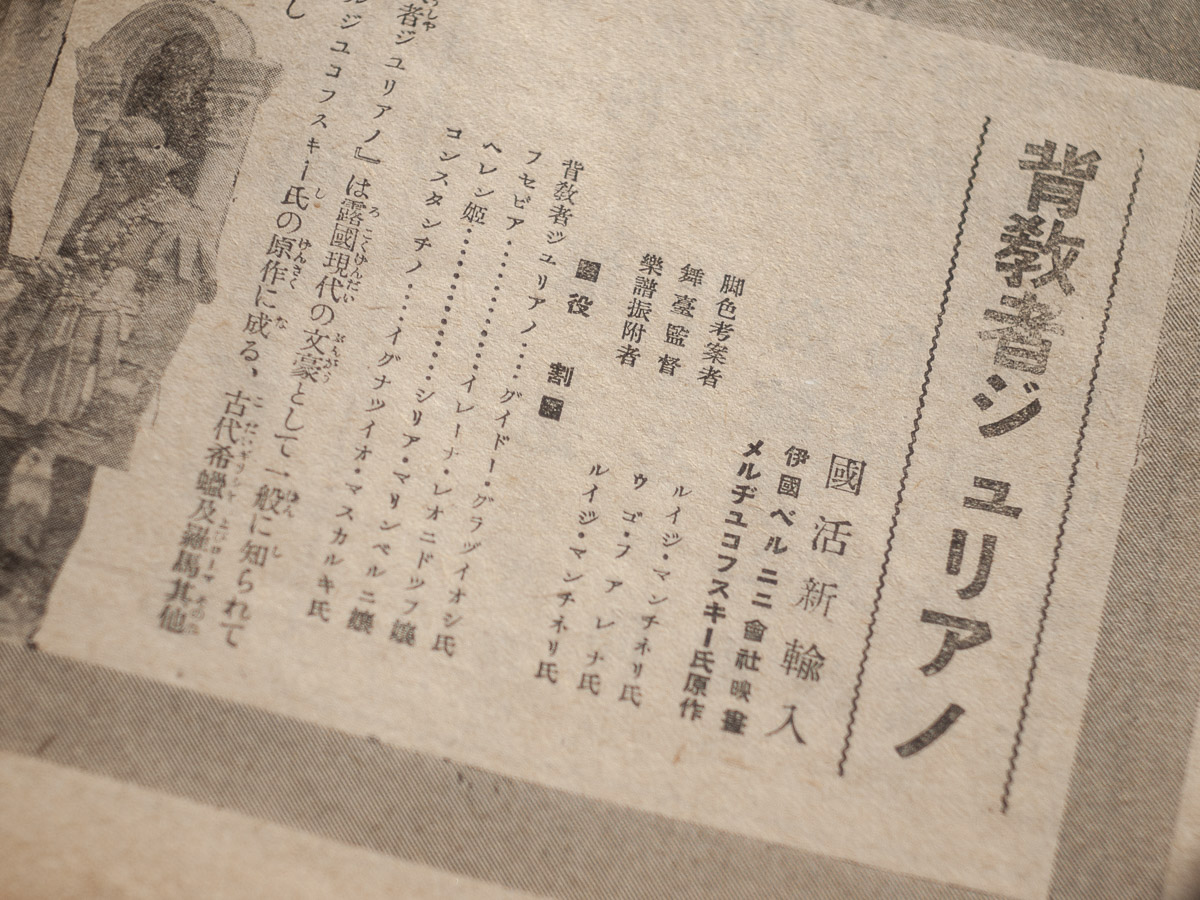 背敎者ジュリアノ
國活新輸入
伊國ベルニニ會社映畫
メルヂユコフスキー氏原作
脚色考案者 ルイジ・マンチネリ氏
舞臺監督 ウゴ・フアレナ氏
樂譜振附者 ルイジ・マンチネリ氏
■役割■
背敎者ジユリアノ‥‥グイドー・グラヅイオシ氏
フセビア‥‥‥‥‥‥イレーナ・レオニドツフ孃
ヘレン姬‥‥‥‥‥‥‥シリア・マリンベルニ孃
コンスタンチノ‥‥イグナツイオ・マスカルキ氏
者ジユリアノ』は露國現代の文豪として一般に知られて
ルジユコフスキー氏の原作に成る、古代希蠟及羅馬其他
し